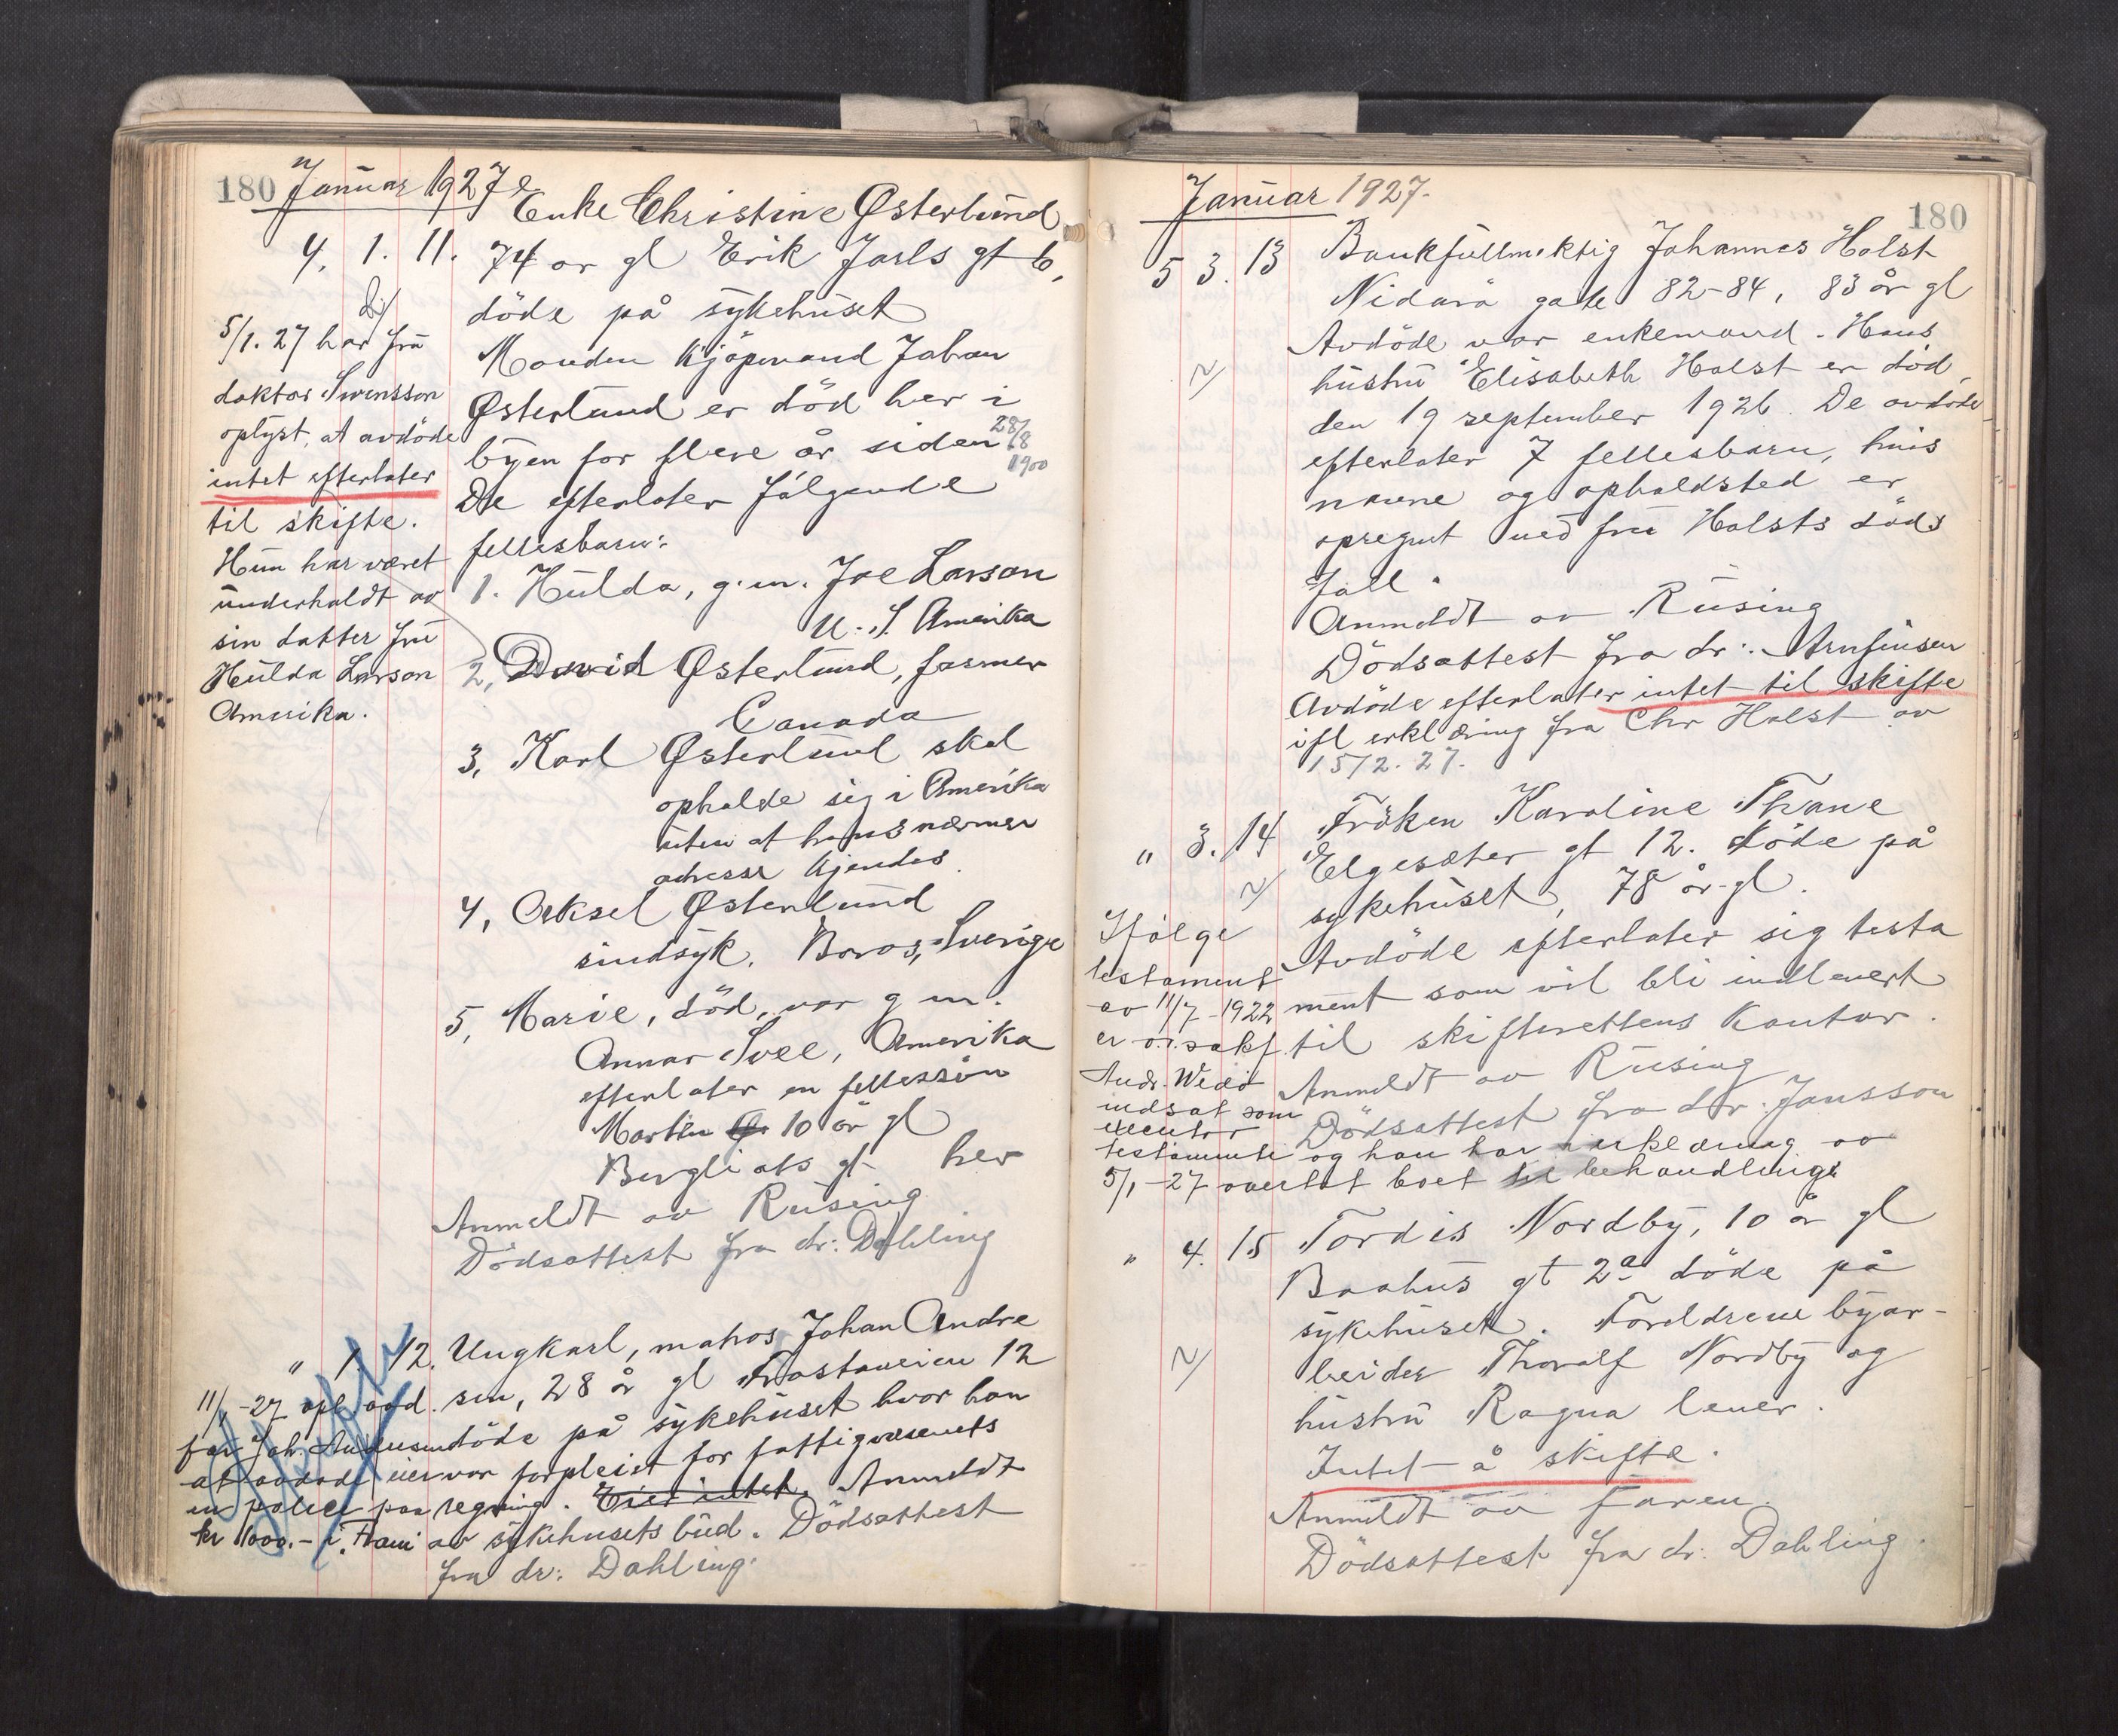 180 Januar 1927
Enke Christine Østerlund
4. 1. 11. 74 år gl Erik Jarls gt 6,
döde på sykehuset
Manden kjöpmand Johan
Østerlund er död her i
byen for flere år siden 28/8
1900
De efterlater fölgende
fellesbarn:
1. Hulda, g.m. Joe Larson
U.S. Amerika
2, David Østerlund, farmer
Canada
3, Karl Østerlund skal
opholde sig i Amerika
uten at hans nærmere
adresse kjendes.
4, Aksel Østerlund
sindsyk. Boros, Sverige
5, Marie, död, var g m.
Annar Svee, Amerika
efterlater en fellessön
Martin 10 år gl
Bergliots gt her
Anmeldt av Rüsing
Dödsattest fra dr: Dahling
5/1. 27 har fru
doktor Svensson
oplyst, at avdöde
intet efterlater
til skifte.
Hun har været
underholdt av
sin datter fru
Hulda Larson
Amerika.
" 1. 12. Ungkarl, matros Johan Andre
sen, 28 år gl Frostaveien 12
döde på sykehuset hvor han
var forpleiet for fattigvæsenets
regning. Eier intet. Anmeldt
av sykehusets bud. Dödsattest
fra dr: Dahling.
11/1-27 opl avd.
far Joh. Andresen
at avdöde eier
en police paa
kr 1000.- i Fram
Januar 1927.
180
5 3. 13 Bankfullmektig Johannes Holst
Nidarö gate 82-84, 83 år gl
Avdöde var enkemand. Hans
hustru Elisabeth Holst er död
den 19 september 1926. De avdöde
efterlater 7 fellesbarn, hvis
navne og opholdsted er
opregnet ved fru Holsts döds
fall.
Anmeldt av Rüsing
Dödsattest fra dr: Arnfinsen
Avdöde efterlater intet til skifte
ifl erklæring fra Chr Holst av
15/2. 27.
" 3. 14 Fröken Karoline Thrane
Elgesæter gt 12. döde på
sykehuset, 78 år gl.
Avdöde efterlater sig testa
ment som vil bli indlevert
til skifterettens kontor.
Anmeldt av Rüsing
Dödsattest fra dr. Jansson
Ifölge
testament
av 11/7-1922
er o.r.sakf.
Andr.
indsat som
executor
testamenti og han har i erklæring av
5/1-27 overtat boet til behandling.
" 4. 15 Tordis Nordby, 10 år gl
Baahus gt 2a döde på
sykehuset. Foreldrene byar-
beider Thoralf Nordby og
hustru Ragna lever.
Intet å skifte.
Anmeldt av faren.
Dödsattest fra dr. Dahling.